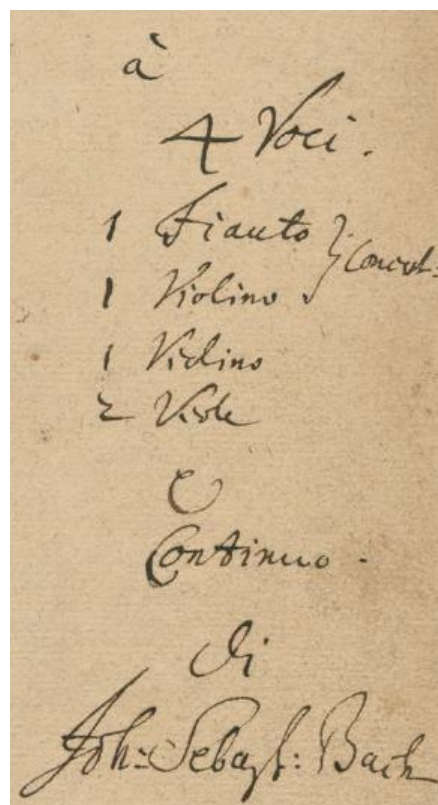 à
4 Voci.
1 Fiauto } Concert:
1 Violino
1 Violino
2 Viole
e
Continuo.
di
Joh: Sebast: Bach